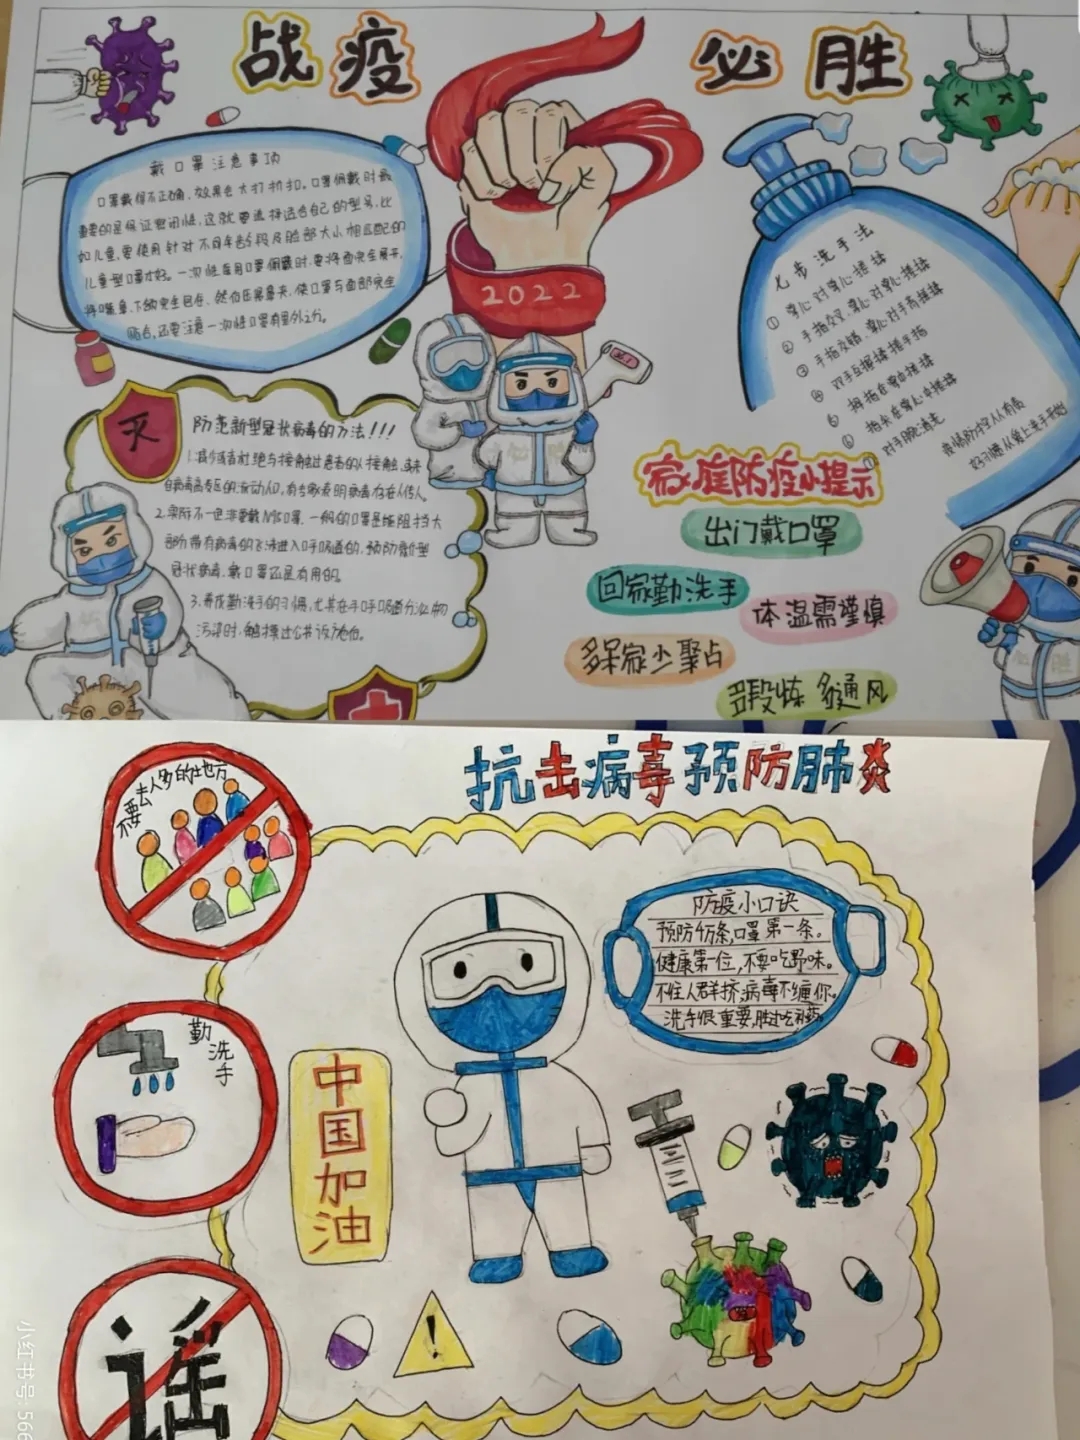 战疫必胜
戴口罩注意事项
口罩戴得不正确，效果会大打折扣。口罩佩戴时最
重要的是保证密闭性，这就要选择适合自己的型号，比
如儿童，要使用针对不同年龄段及脸部大小相匹配的
儿童型口罩才好。一次性医用口罩佩戴时，要将面完全展开，
将嘴、鼻、下颌完全包住，然后压紧鼻夹，使口罩与面部完全
贴合，还要注意一次性口罩有里外之分。
2022
七步洗手法
① 掌心对掌心搓揉
② 手指交叉，掌心对掌心搓揉
③ 手指交错，掌心对手背搓揉
④ 双手互握搓揉手指
⑤ 拇指在掌中搓揉
⑥ 指尖在掌心中搓揉
⑦ 对手腕清洗
疫情防控人人有责
好习惯从爱上洗手开始
灭
防范新型冠状病毒的方法!!!
2.实际不一定非要戴N95口罩，一般的口罩是能阻挡大
部分带有病毒的飞沫进入呼吸道的，预防新型
冠状病毒，戴口罩还是有用的。
3.养成勤洗手的习惯，尤其在手呼吸道分泌物
污染时，触摸过公共设施后。
家庭防疫小提示
出门戴口罩
回家勤洗手
体温需谨慎
多呆家少聚占
多段炼 多通风
抗击病毒预防肺炎
不要去人多的地方
防疫小口诀
预防千万条，口罩第一条。
健康第一位，不要吃野味。
不往人群挤，病毒不缠你。
洗手很重要，胜过吃补药。
勤洗手
中国加油
谣
小红书号：566